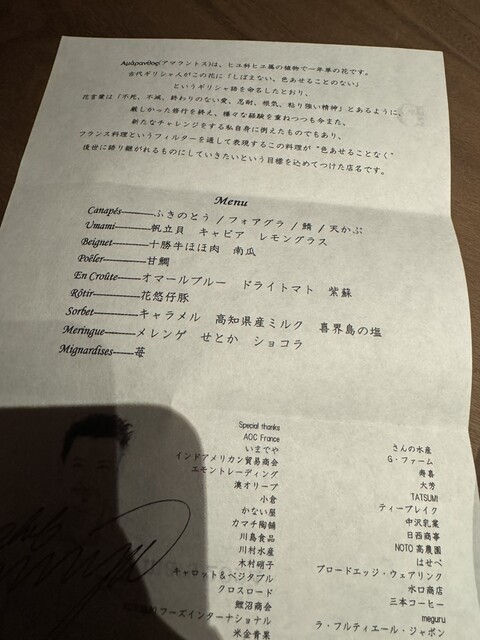 Aμάρανθος(アマラントス)は、ヒユ科ヒユ属の植物で一年草の花です。
古代ギリシャ人がこの花に「しぼまない、色あせることのない」
というギリシャ語を命名したとおり、
花言葉は「不死、不滅、終わりのない愛、忍耐、根気、粘り強い精神」とあるように、
厳しかった修行を終え、様々な経験を重ねつつも今また、
新たなチャレンジをする私自身に例えたものでもあり、
フランス料理というフィルターを通して表現するこの料理が"色あせることなく"
後世に語り継がれるものにしていきたいという目標を込めてつけた店名です。
Menu
Canapés———ふきのとう / フォアグラ / 鯖 / 天かぶ
Umami———帆立貝 キャビア レモングラス
Beignet———十勝牛ほほ肉 南瓜
Poêler———甘鯛
En Croûte———オマールブルー ドライトマト 紫蘇
Rôtir———花悠仔豚
Sorbet———キャラメル 高知県産ミルク 喜界島の塩
Meringue———メレンゲ せとか ショコラ
Mignardises———苺
Special thanks
AOC France
いまでや
インドアメリカン貿易商会
エモントレーディング
澳オリーブ
小倉
かない屋
カマチ陶舗
川島食品
川村水産
木村硝子
キャロット&ベジタブル
クロスロード
鯉沼商会
フーズインターナショナル
米金青果
さんの水産
G・ファーム
寿喜
大芳
TATSUMI
ティーブレイク
中沢乳業
日西商事
NOTO高農園
はせべ
ブロードエッジ・ウェアリンク
水口商店
三本コーヒー
meguru
ラ・フルティエール・ジャポン